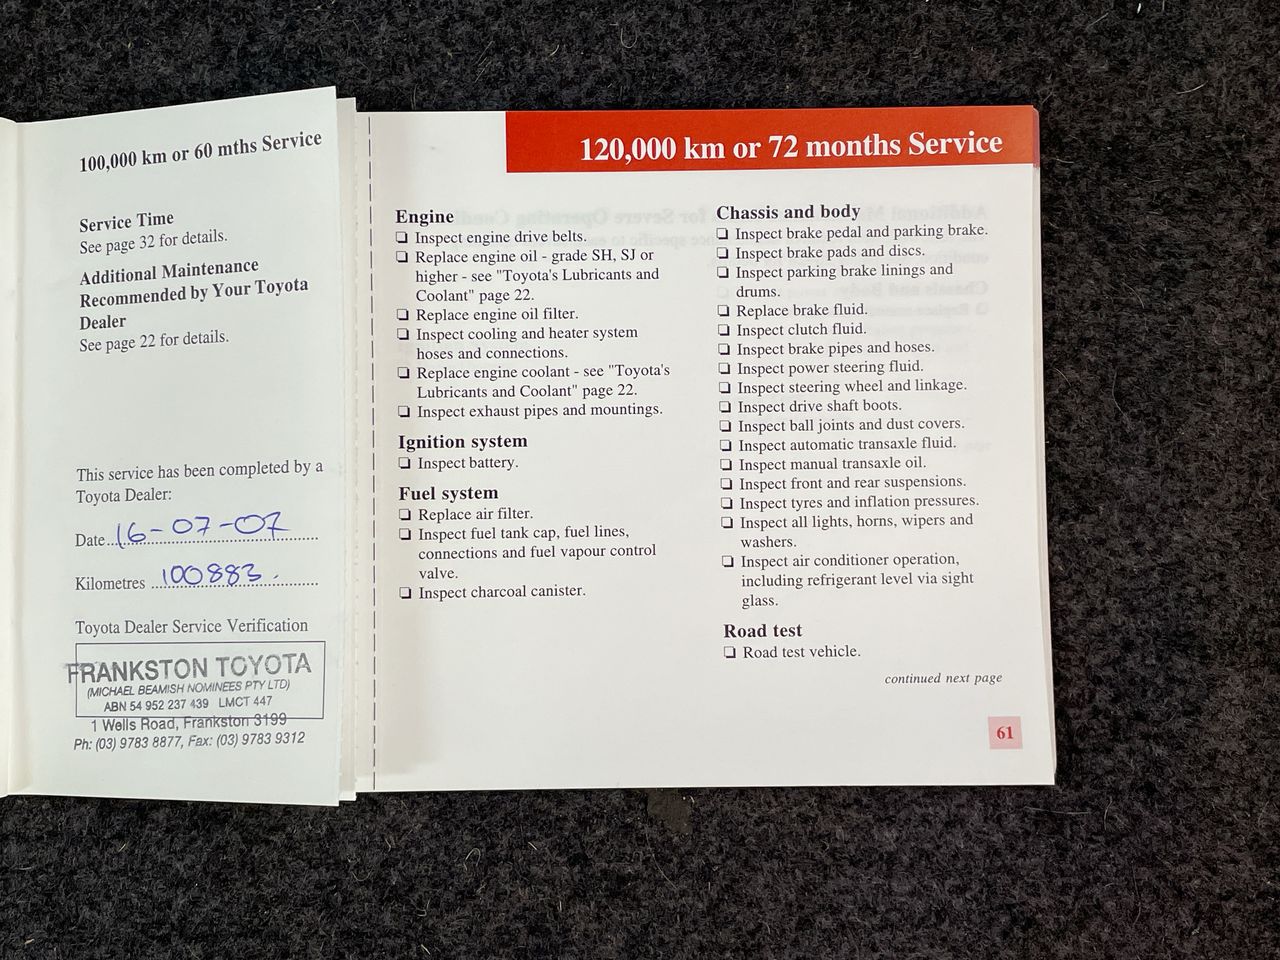 100,000 km or 60 mths Service
Service Time
See page 32 for details.
Additional Maintenance
Recommended by Your Toyota
Dealer
See page 22 for details.
This service has been completed by a
Toyota Dealer:
Date 16-07-07
Kilometres 100883.
Toyota Dealer Service Verification
FRANKSTON TOYOTA
(MICHAEL BEAMISH NOMINEES PTY LTD)
ABN 54 952 237 439 LMCT 447
1 Wells Road, Frankston 3199
Ph: (03) 9783 8877, Fax: (03) 9783 9312
120,000 km or 72 months Service
Engine
❏ Inspect engine drive belts.
❏ Replace engine oil - grade SH, SJ or
higher - see "Toyota's Lubricants and
Coolant" page 22.
❏ Replace engine oil filter.
❏ Inspect cooling and heater system
hoses and connections.
❏ Replace engine coolant - see "Toyota's
Lubricants and Coolant" page 22.
❏ Inspect exhaust pipes and mountings.
Ignition system
❏ Inspect battery.
Fuel system
❏ Replace air filter.
❏ Inspect fuel tank cap, fuel lines,
connections and fuel vapour control
valve.
❏ Inspect charcoal canister.
Chassis and body
❏ Inspect brake pedal and parking brake.
❏ Inspect brake pads and discs.
❏ Inspect parking brake linings and
drums.
❏ Replace brake fluid.
❏ Inspect clutch fluid.
❏ Inspect brake pipes and hoses.
❏ Inspect power steering fluid.
❏ Inspect steering wheel and linkage.
❏ Inspect drive shaft boots.
❏ Inspect ball joints and dust covers.
❏ Inspect automatic transaxle fluid.
❏ Inspect manual transaxle oil.
❏ Inspect front and rear suspensions.
❏ Inspect tyres and inflation pressures.
❏ Inspect all lights, horns, wipers and
washers.
❏ Inspect air conditioner operation,
including refrigerant level via sight
glass.
Road test
❏ Road test vehicle.
continued next page
61